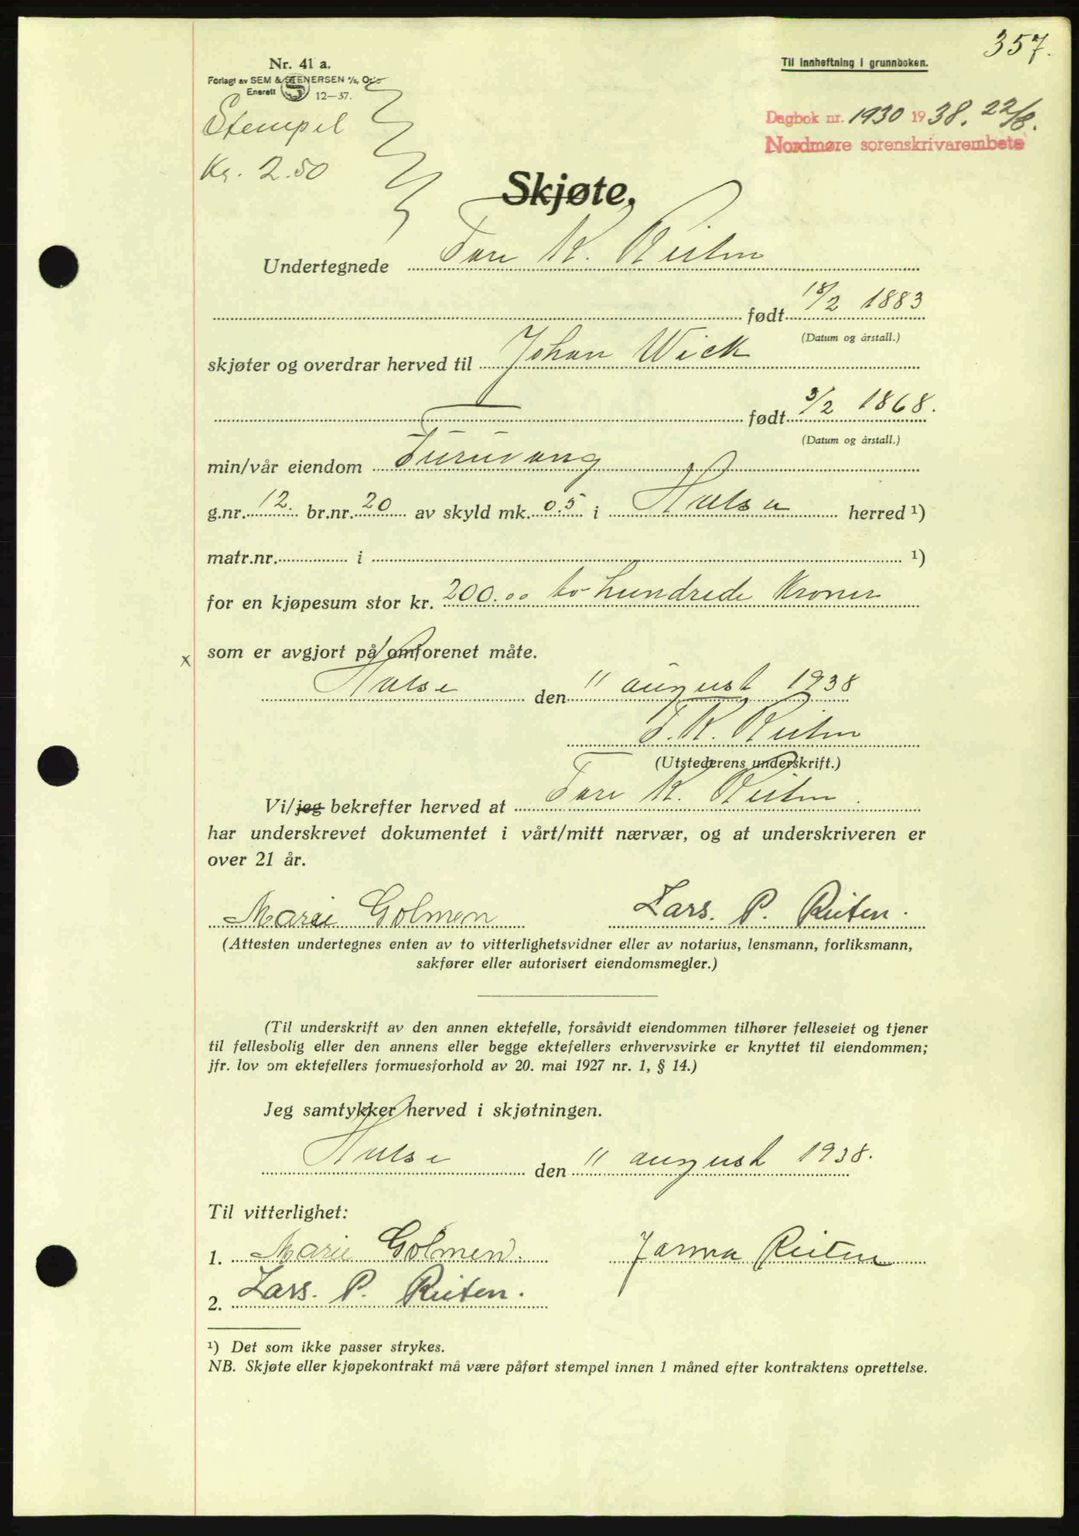 357.
Nr. 41 a.
Til innheftning i grunnboken.
Forlagt av SEM & STENERSEN A/S, Oslo
Enerett S 12—37.
Stempel
Kr. 2.50
Dagbok nr. 1930 1938. 22/8.
Nordmøre sorenskrivarembete
Skjøte.
Undertegnede Tore K. Reiten
født 18/2 1883
(Datum og årstall.)
skjøter og overdrar herved til Johan Wick
født 3/2 1868.
(Datum og årstall.)
min/vår eiendom Furuvang
g.nr. 12. br.nr. 20 av skyld mk. 0.5 i Halsa herred ¹)
matr.nr. i ¹)
for en kjøpesum stor kr. 200.00 to hundrede Kroner
x som er avgjort på omforenet måte.
Halse den 11 august 1938
T. K. Reiten
(Utstederens underskrift.)
Vi/jeg bekrefter herved at Tore K. Reiten.
har underskrevet dokumentet i vårt/mitt nærvær, og at underskriveren er
over 21 år.
Marie Golmen Lars. P. Reiten.
(Attesten undertegnes enten av to vitterlighetsvidner eller av notarius, lensmann, forliksmann,
sakfører eller autorisert eiendomsmegler.)
(Til underskrift av den annen ektefelle, forsåvidt eiendommen tilhører felleseiet og tjener
til fellesbolig eller den annens eller begge ektefellers erhvervsvirke er knyttet til eiendommen;
jfr. lov om ektefellers formuesforhold av 20. mai 1927 nr. 1, § 14.)
Jeg samtykker herved i skjøtningen.
Halse den 11 august 1938.
Til vitterlighet:
1. Marie Golmen. Jorma Reiten
2. Lars. P. Reiten.
¹) Det som ikke passer strykes.
NB. Skjøte eller kjøpekontrakt må være påført stempel innen 1 måned efter kontraktens oprettelse.